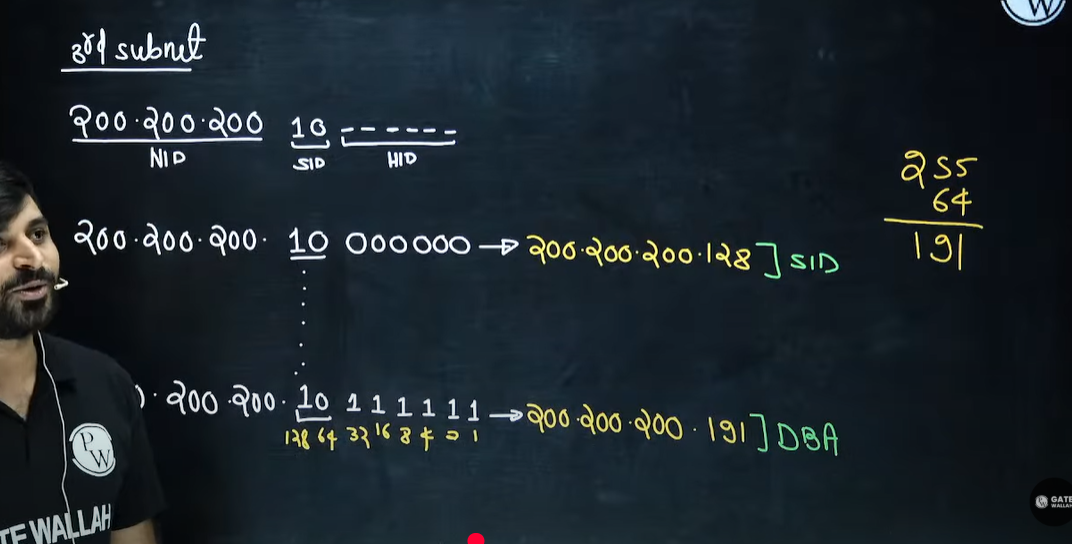 3rd subnet
200.200.200 10 ------
NID SID HID
200.200.200. 10 000000 → 200.200.200.128 ] SID
. 200.200. 10 1 1 1 1 1 1 → 200.200.200.191 ] DBA
128 64 32 16 8 4 2 1
255
64
191
PW
GATE
WALLAH
TE WALLAH
W